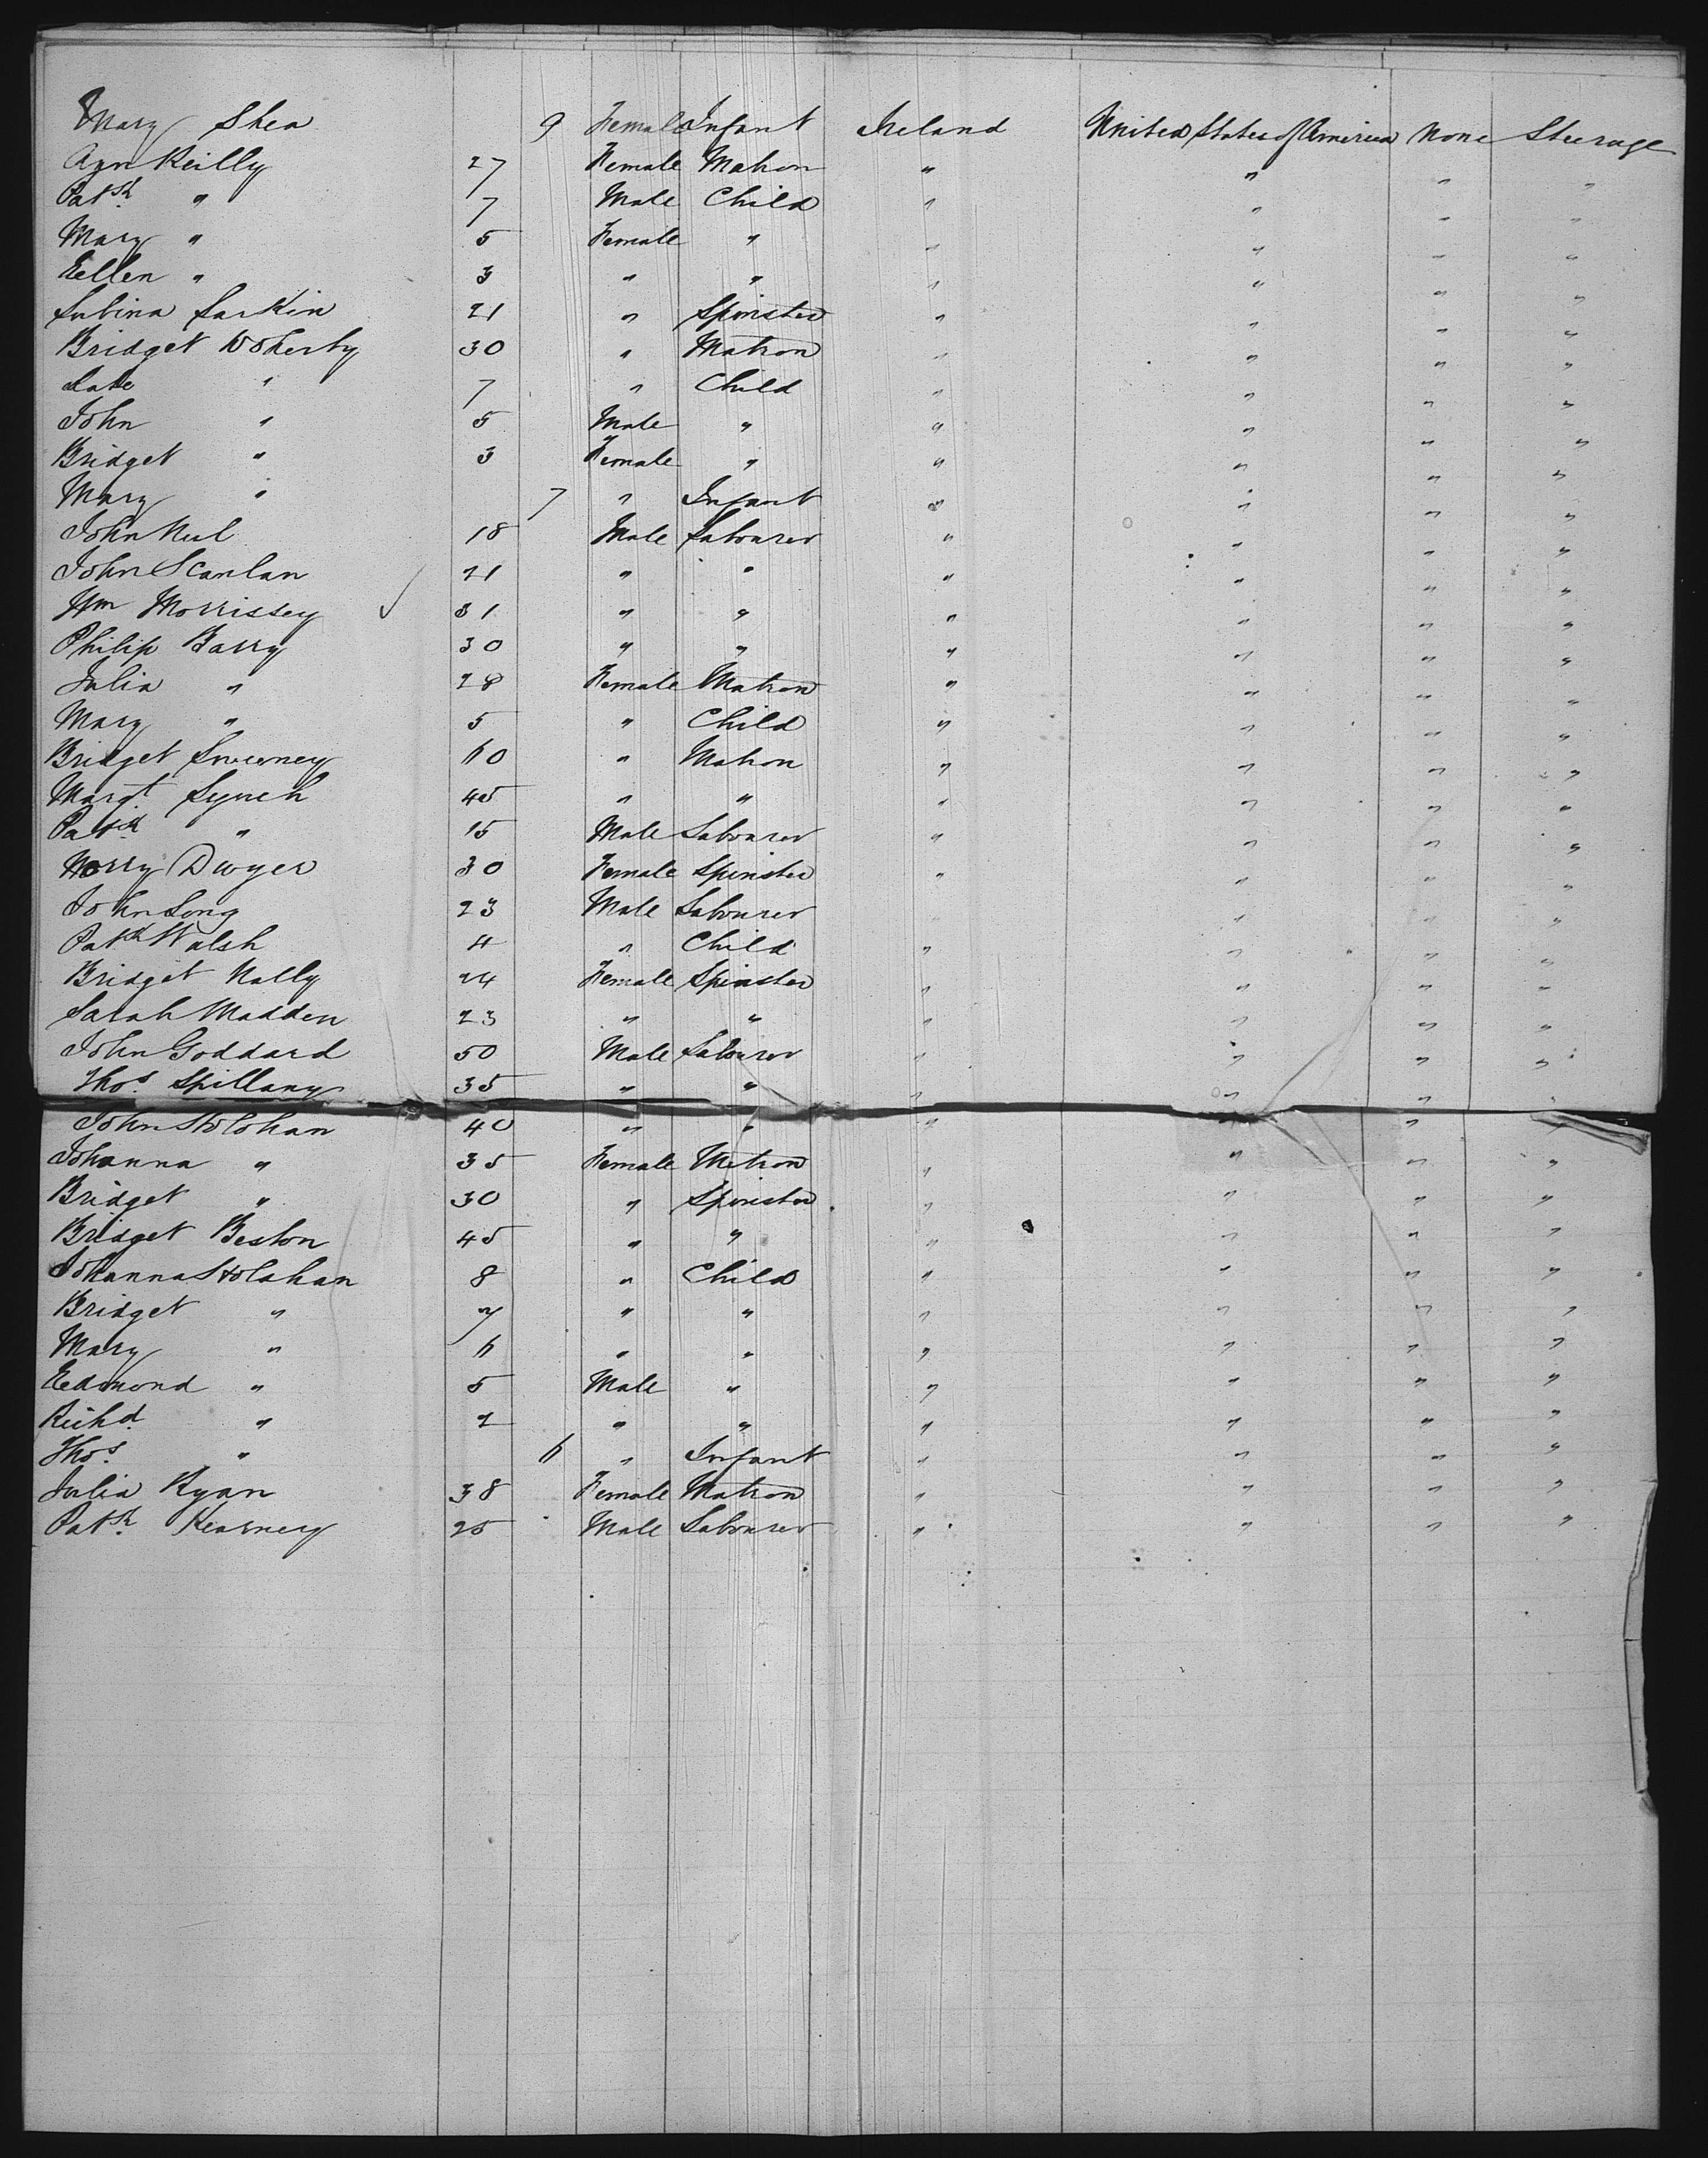 Mary Shea 9 Female Infant Ireland United States of America None Steerage
Agn Reilly 27 Female Matron " " " "
Patk " 7 Male Child " " " "
Mary " 5 Female " " " " "
Eellen " 3 " " " " " "
Larkin 21 " Spinster " " " "
Bridget Doherty 30 " Matron " " " "
Kate " 7 " Child " " " "
John " 5 Male " " " " "
Bridget " 3 Female " " " " "
Mary " 7 " Infant " " " "
John 18 Male Labourer " " " "
John Scanlan 21 " " " " " "
Wm Morrissey ✓ 31 " " " " " "
Philip Barry 30 " " " " " "
Julia " 28 Female Matron " " " "
Mary " 5 " Child " " " "
Bridget Sweeney 60 " Matron " " " "
Margt. Lynch 45 " " " " " "
Patk " 15 Male Labourer " " " "
Dwyer 30 Female Spinster " " " "
John Long 23 Male Labourer " " " "
Patk Walsh 4 " Child " " " "
Bridget Nally 24 Female Spinster " " " "
Sarah Madden 23 " " " " " "
John Goddard 50 Male Labourer " " " "
Thos. Spillany 35 " " " " " "
John 40 " " " " " "
Johanna " 35 Female Matron " " " "
Bridget " 30 " Spinster " " " "
Bridget Beston 45 " " " " " "
Johanna 8 " Child " " " "
Bridget " 7 " " " " " "
Mary " 6 " " " " " "
Eedmond " 5 Male " " " " "
Richd. " 2 " " " " " "
Thos. " 6 " Infant " " " "
Julia Ryan 38 Female Matron " " " "
Patk. Kearney 25 Male Labourer " " " "